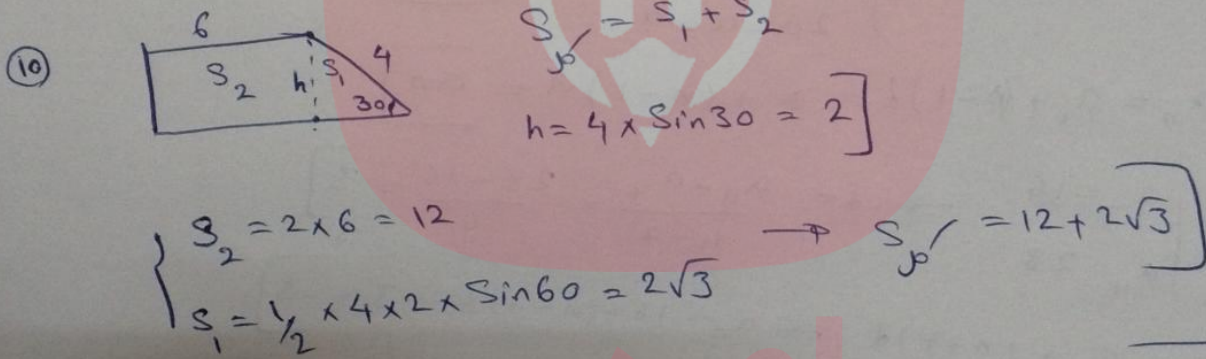 10
6
S₂ h S₁ 4
30
Sکل = S₁ + S₂
h = 4 × Sin30 = 2 ]
S₂ = 2×6 = 12
S₁ = 1/2 × 4×2× Sin60 = 2√3
→ Sکل = 12 + 2√3 ]